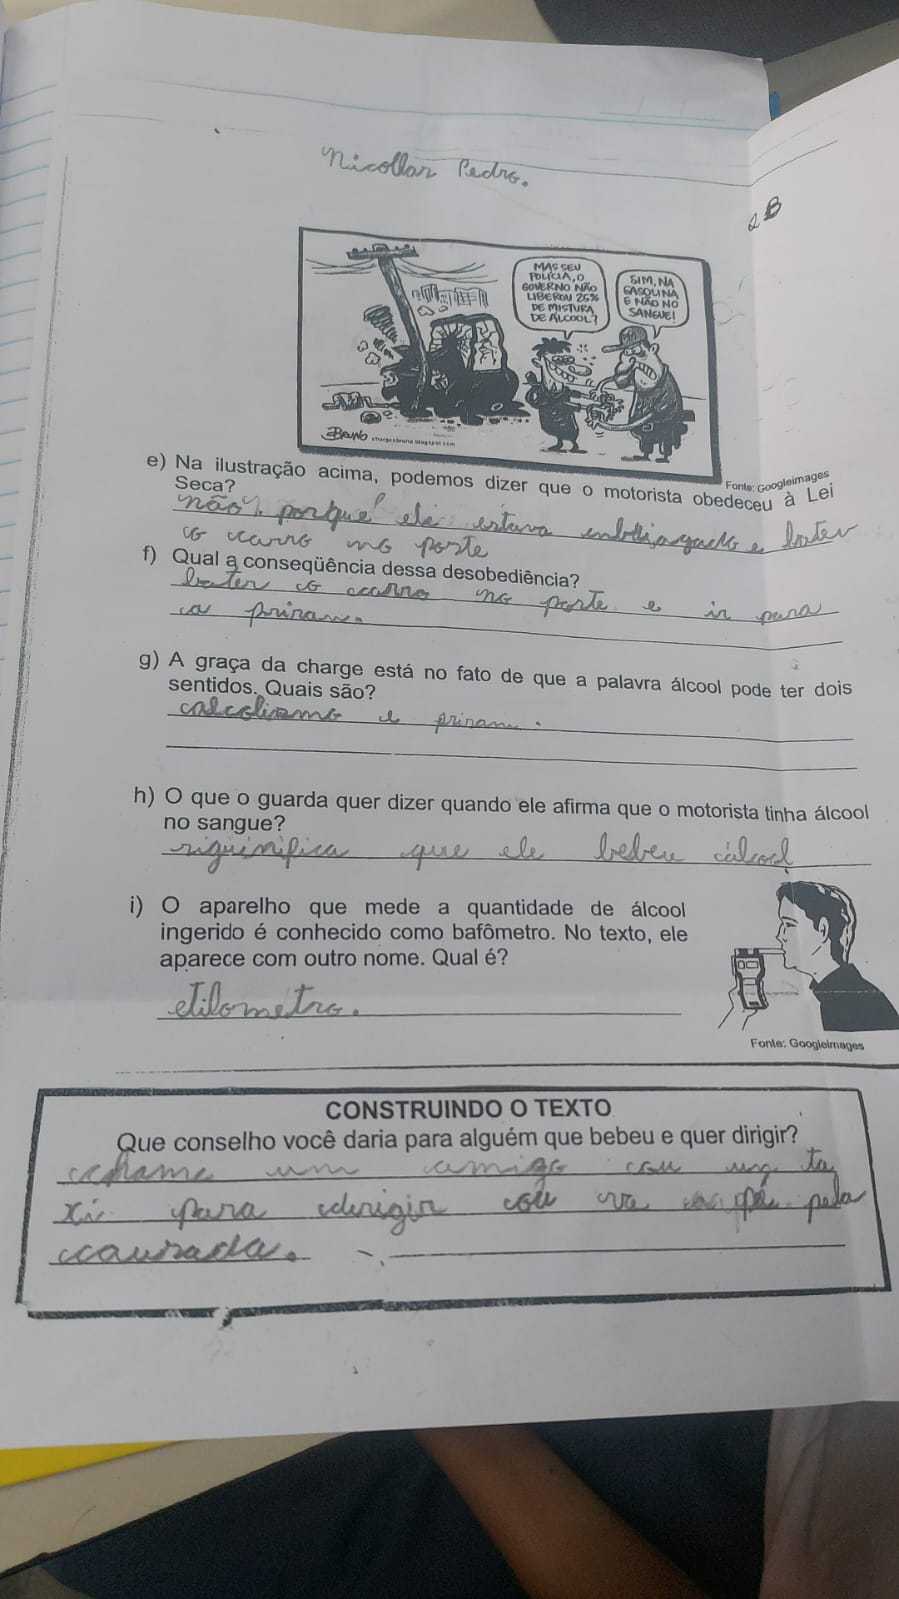 Nicollar Pedro.
2B
MAS SEU
POLÍCIA, O
GOVERNO NÃO
LIBEROU 26%
DE MISTURA
DE ÁLCOOL?
SIM, NA
GASOLINA
E NÃO NO
SANGUE!
BRUNO chargesbruno.blogspot.com
Fonte: Googleimages
e) Na ilustração acima, podemos dizer que o motorista obedeceu à Lei
Seca?
não, porque ele estava e bater
o carro no poste
f) Qual a conseqüência dessa desobediência?
bater o carro no poste e ir para
a prizam.
g) A graça da charge está no fato de que a palavra álcool pode ter dois
sentidos. Quais são?
alcolismo e prizam.
h) O que o guarda quer dizer quando ele afirma que o motorista tinha álcool
no sangue?
siguinifica que ele bebeu álcool
i) O aparelho que mede a quantidade de álcool
ingerido é conhecido como bafômetro. No texto, ele
aparece com outro nome. Qual é?
etilometro.
Fonte: Googleimages
CONSTRUINDO O TEXTO
Que conselho você daria para alguém que bebeu e quer dirigir?
chame um amigo ou um ta
xi para dirigir ou va a pé pela
caurada.